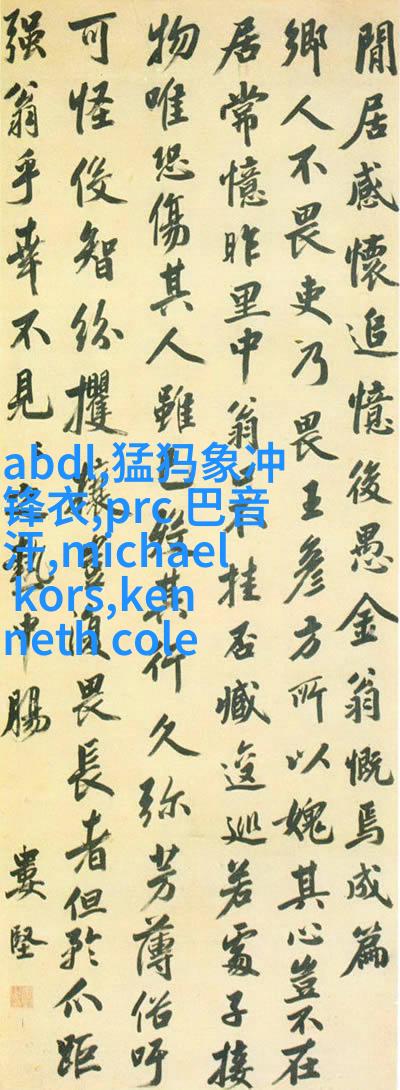 閒居感懷追憶後愚金翁慨焉成篇
鄉人不畏吏乃畏王彥方所以媿其心豈不在
居常憶昨里中翁挂否臧逡巡若處子接
物唯恐傷其人雖其行久弥芳薄俗吁
可怪佼智紛攫攘豈復畏長者但矜爪距
强翁乎幸不見中腸
婁堅
abdl,猛犸象冲
锋衣,prc,巴音
汗,michael
kors,ken
neth cole